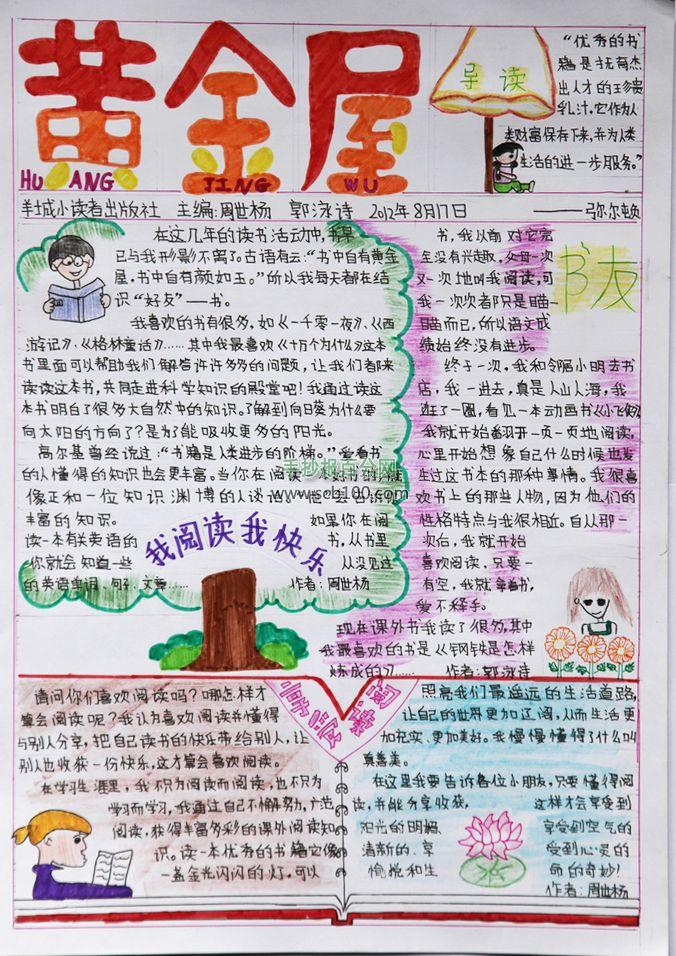 黄金屋
HUANG JING WU
导读
“优秀的书
籍是抚育杰
出人才的珍贵
乳汁,它作为人
类财富保存下来,并为人类
生活的进一步服务。”
——弥尔顿
羊城小读者出版社 主编:周世杨 郭泳诗 2012年8月17日
在这几年的读书活动中,书早
已与我形影不离了。古语有云:“书中自有黄金
屋,书中自有颜如玉。”所以我每天都在结
识“好友”——书。
我喜欢的书有很多,如《一千零一夜》、《西
游记》、《格林童话》……其中我最喜欢《十万个为什么》这本
书里面可以帮助我们解答许许多多的问题,让我们都来
读读这本书,共同走进科学知识的殿堂吧!我通过读这
本书明白了很多大自然中的知识。了解到向日葵为什么要
向太阳的方向了?是为了能吸收更多的阳光。
高尔基曾经说过:“书籍是人类进步的阶梯。”爱看书
的人懂得的知识也会更丰富。当你在阅读一本好书时,就
像正和一位知识渊博的人谈
丰富的知识。 如果你在阅
读一本有关英语的 书,从书里
你就会知道一些 从没见过
的英语单词、句子、文章…… 作者:周世杨
我阅读我快乐
手抄报百分网
www.cb100.com
书友
书,我以前对它完
全没有兴趣,父母一次
又一次地叫我阅读,可
我一次次都只是瞄一
瞄而已,所以语文成
绩始终没有进步。
终于一次,我和邻居小明去书
店,我一进去,真是人山人海,我
逛了一圈,看见一本动画书《小飞侠》
我就开始翻开一页一页地阅读,
心里开始想象自己什么时候也发
生过这书本的那种事情。我很喜
欢书上的那些人物,因为他们的
性格特点与我很相近。自从那一
次后,我就开始
喜欢阅读,只要一
有空,我就拿着书,
爱不释手。
现在课外书我读了很多,其中
我最喜欢的书是《钢铁是怎样
炼成的》…… 作者:郭泳诗
享受阅读
请问你们喜欢阅读吗?哪怎样才
算会阅读呢?我认为喜欢阅读并懂得
与别人分享,把自己读书的快乐带给别人,让
别人也收获一份快乐,这才算会喜欢阅读。
在学习生涯里,我不只为阅读而阅读,也不只为
学习而学习,我通过自己不懈努力,广范
阅读,获得丰富多彩的课外阅读知
识。读一本优秀的书籍它像
一盏金光闪闪的灯,可以
照亮我们最遥远的生活道路,
让自己的世界更加辽阔,从而生活更
加充实、更加美好。我慢慢懂得了什么叫
真善美。
在这里我要告诉各位小朋友,只要懂得阅
读,书能分享收获, 这样才会享受到
阳光的明媚、 享受到空气的
清新的、享 受到心灵的
愉悦和生 命的奇妙!
作者:周世杨